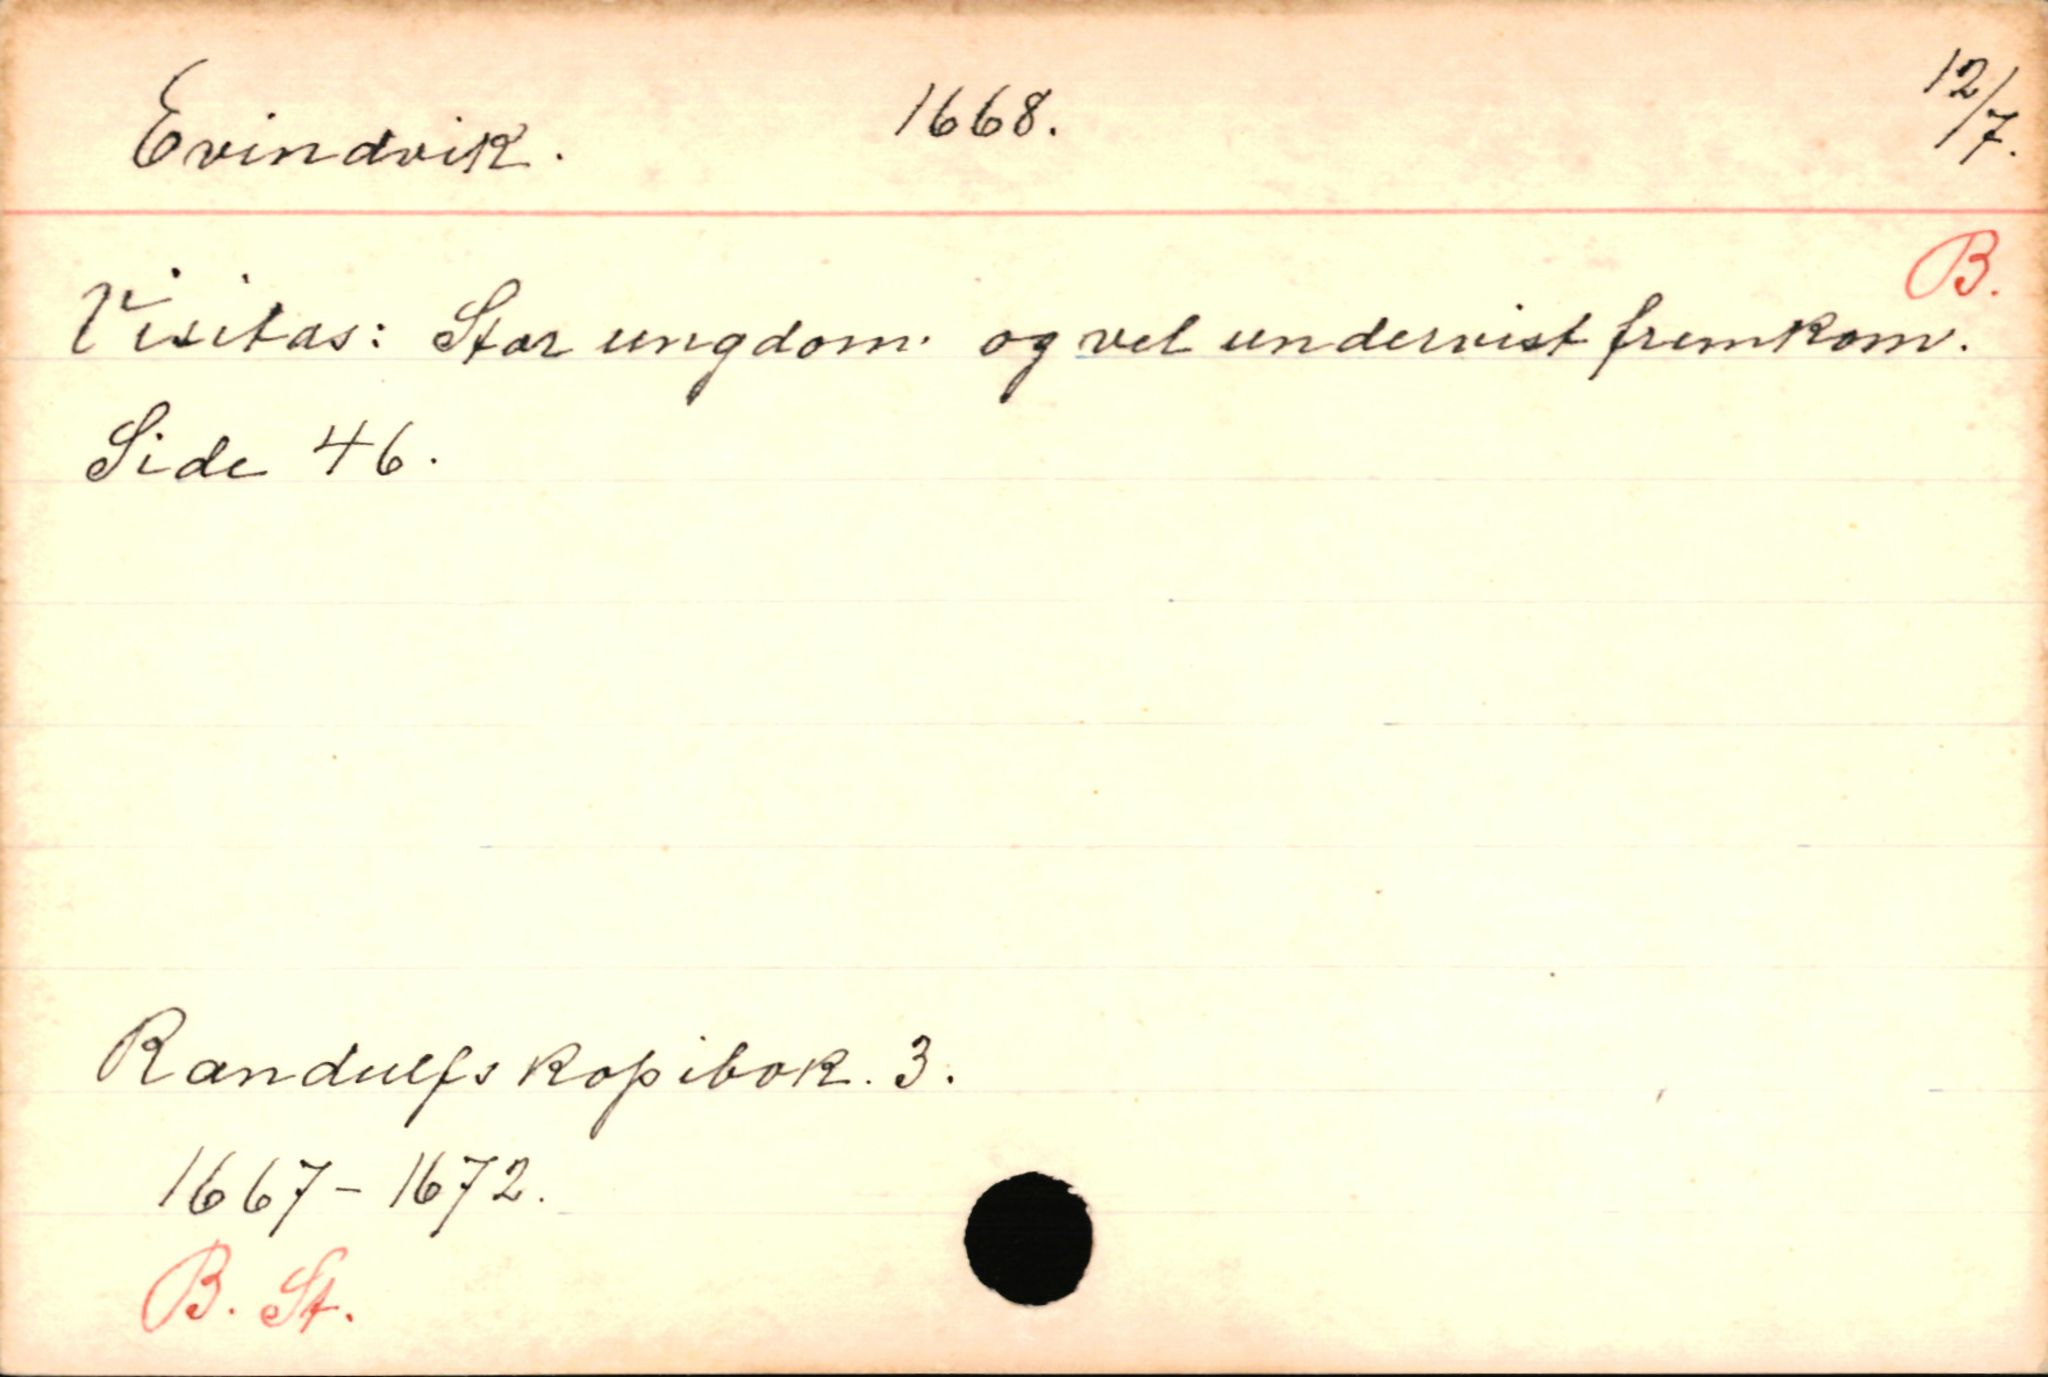 Evindvik. 1668. 12/7.
B.
Visitas: Stor ungdom. og vel undervist fremkom.
Side 46.
Randulfs kopibok. 3.
1667-1672.
B. St.